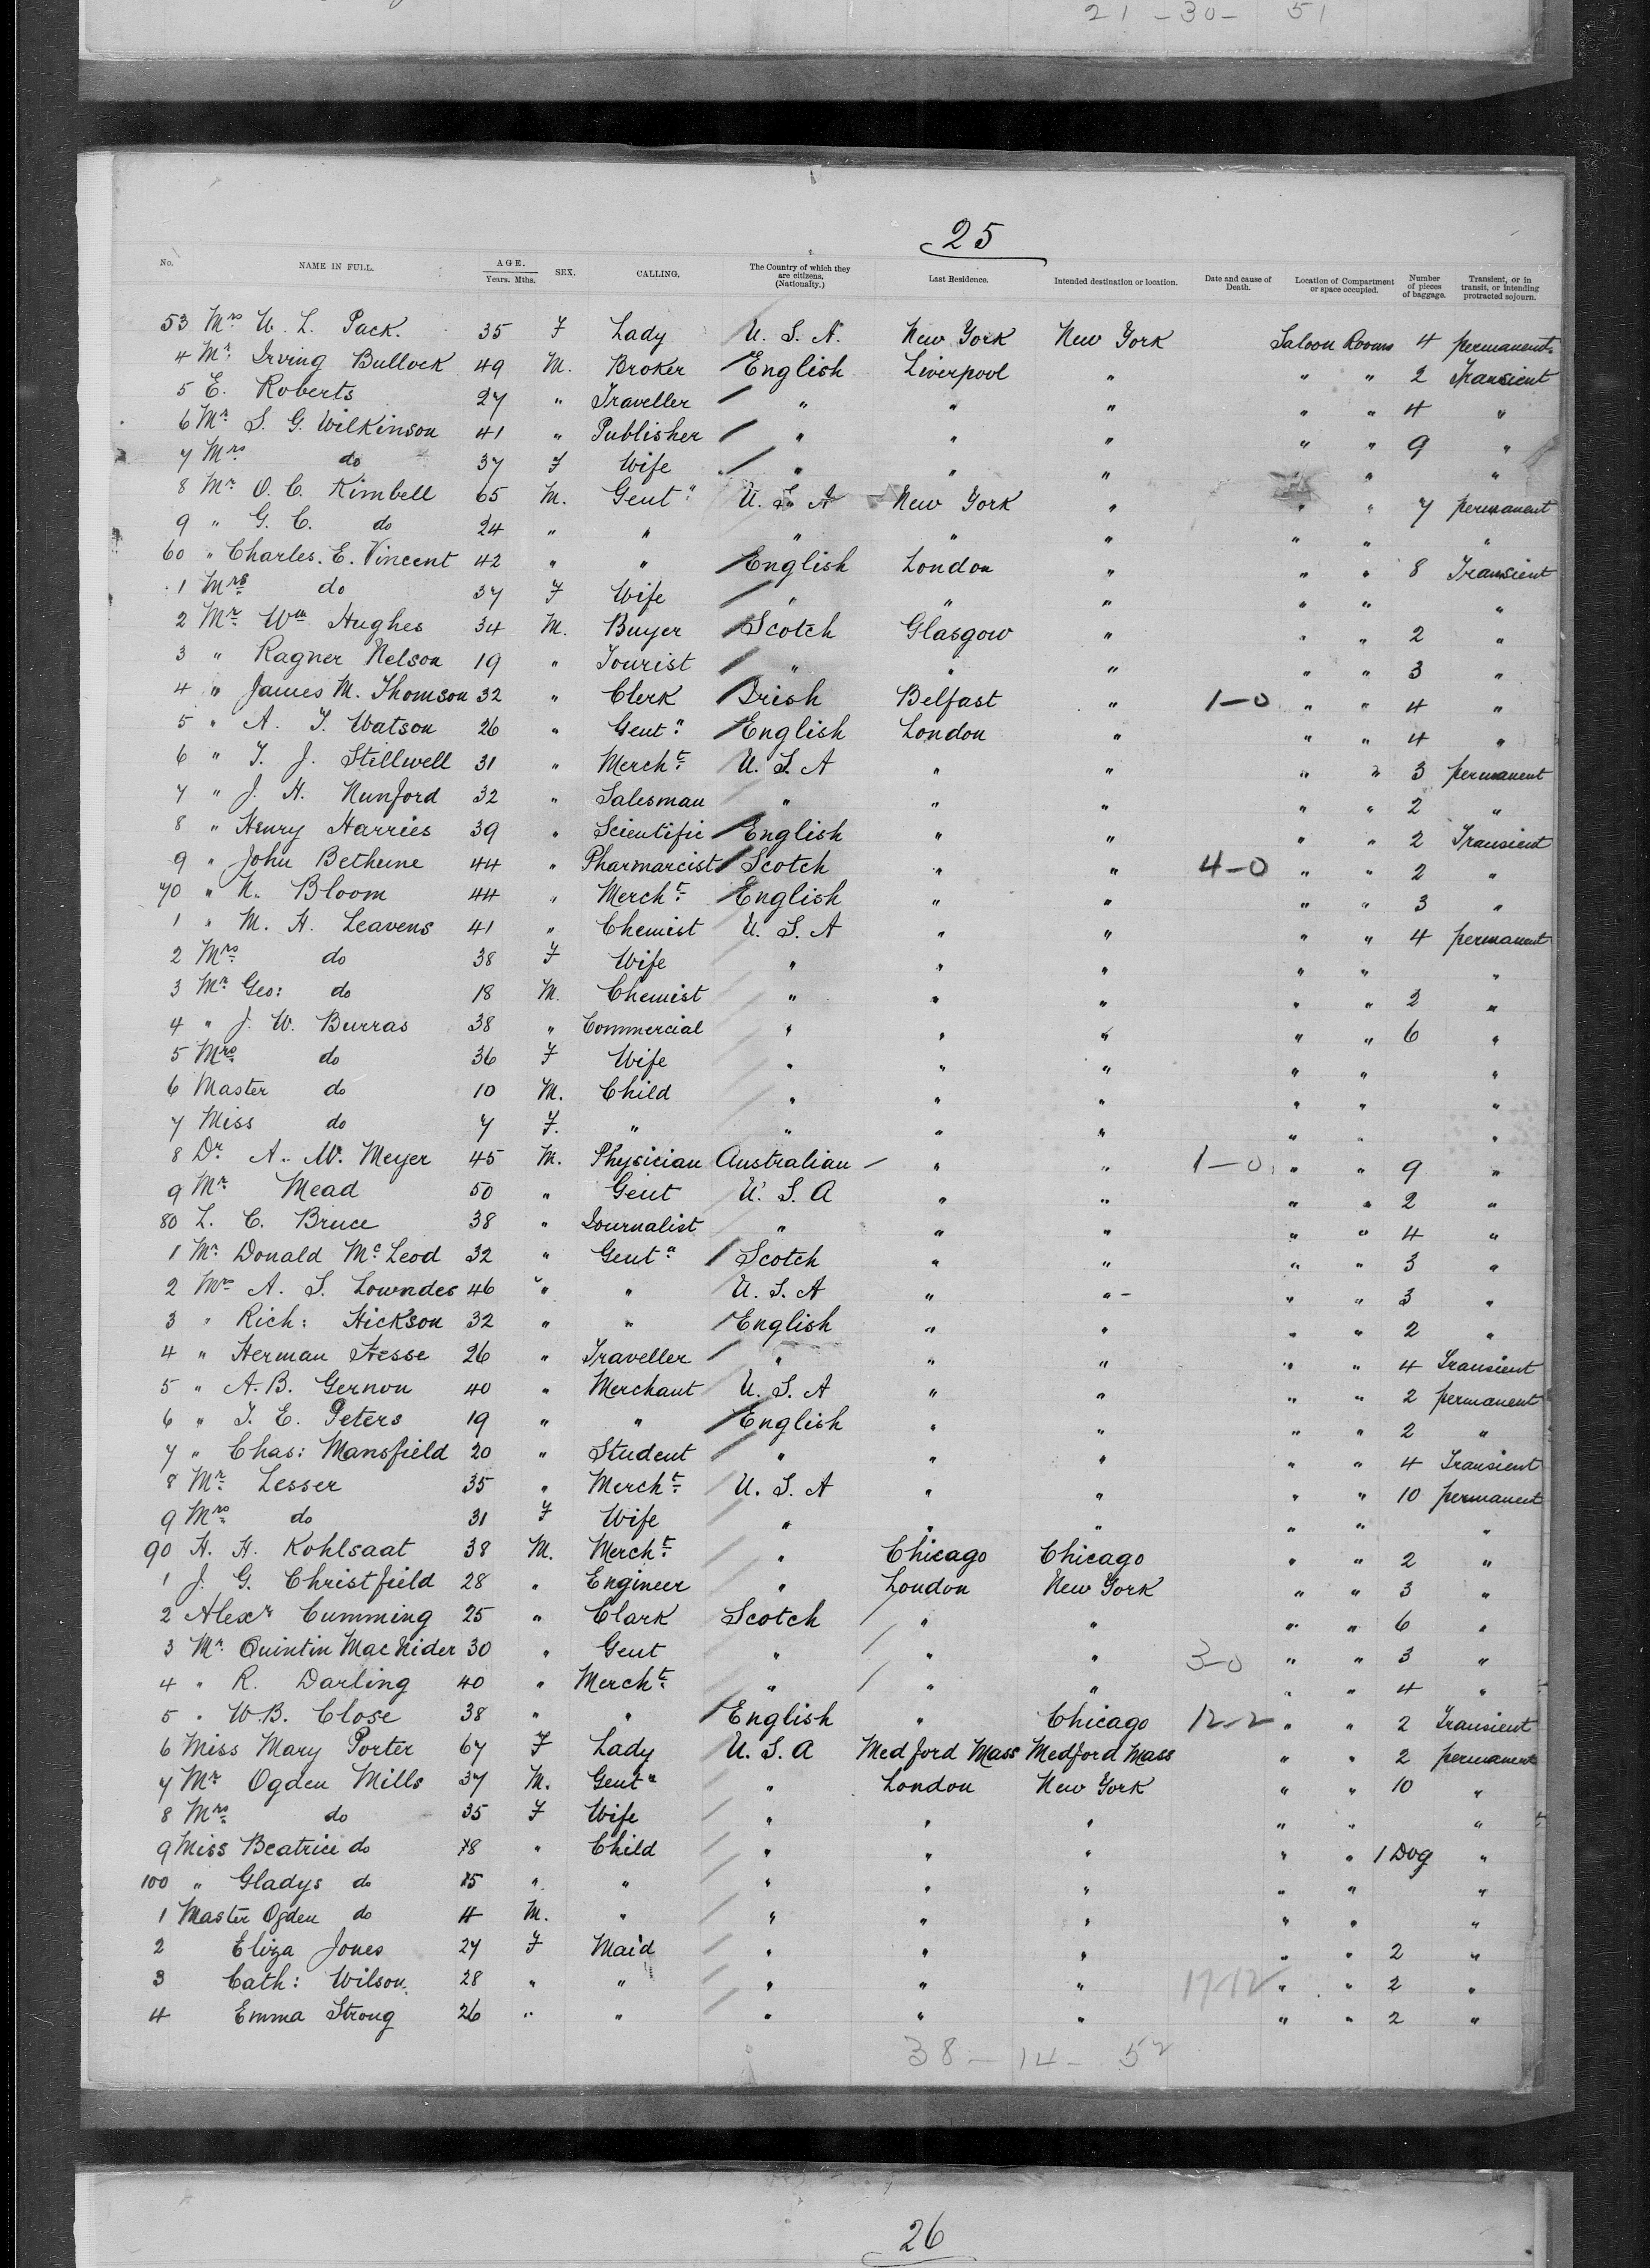 21 - 30 - 51
25
No. NAME IN FULL. AGE. Years. Mths. SEX. CALLING. The Country of which they are citizens. (Nationality.) Last Residence. Intended destination or location. Date and cause of Death. Location of Compartment or space occupied. Number of pieces of baggage. Transient, or in transit, or intending protracted sojourn.
53 Mrs W. L. Pack. 35 F Lady U. S. A. New York New York Saloon Rooms 4 permanent
4 Mr. Irving Bullock 49 M. Broker English Liverpool " " " 2 Transient
5 E. Roberts 27 " Traveller " " " " " 4 "
6 Mr. S. G. Wilkinson 41 " Publisher " " " " " 9 "
7 Mrs do 37 F Wife " " " " "
8 Mr. O. C. Kimbell 65 M. Gent" U. S. A New York " " " 7 permanent
9 " G. C. do 24 " " " " " " " "
60 " Charles. E. Vincent 42 " " English London " " " 8 Transient
1 Mrs do 37 F Wife " " " " " "
2 Mr. Wm Hughes 34 M. Buyer Scotch Glasgow " " " 2 "
3 " Ragner Nelson 19 " Tourist " " " " " 3 "
4 " James M. Thomson 32 " Clerk Irish Belfast " 1-0 " " 4 "
5 " A. T. Watson 26 " Gent" English London " " " 4 "
6 " T. J. Stillwell 31 " Mercht. U. S. A " " " " 3 permanent
7 " J. H. Nunford 32 " Salesman " " " " " 2 "
8 " Henry Harries 39 " Scientific English " " " " 2 Transient
9 " John Bethune 44 " Pharmarcist Scotch " " 4-0 " " 2 "
70 " N. Bloom 44 " Mercht. English " " " " 3 "
1 " M. H. Leavens 41 " Chemist U. S. A " " " " 4 permanent
2 Mrs do 38 F Wife " " " " " "
3 Mr. Geo: do 18 M. Chemist " " " " " 2 "
4 " J. W. Burras 38 " Commercial " " " " " 6 "
5 Mrs do 36 F Wife " " " " " "
6 Master do 10 M. Child " " " " " "
7 Miss do 7 F. " " " " " " "
8 Dr. A. W. Meyer 45 M. Physician Australian " " 1-0 " " 9 "
9 Mr. Mead 50 " Gent U. S. A " " " " 2 "
80 L. C. Bruce 38 " Journalist " " " " " 4 "
1 Mr. Donald McLeod 32 " Gent" Scotch " " " " 3 "
2 Mr. A. S. Lowndes 46 " " U. S. A " " " " 3 "
3 " Rich: Hickson 32 " " English " " " " 2 "
4 " Herman Hesse 26 " Traveller " " " " " 4 Transient
5 " A. B. Gernon 40 " Merchant U. S. A " " " " 2 permanent
6 " T. E. Peters 19 " " English " " " " 2 "
7 " Chas: Mansfield 20 " Student " " " " " 4 Transient
8 Mr. Lesser 35 " Mercht. U. S. A " " " " 10 permanent
9 Mrs do 31 F Wife " " " " " "
90 H. H. Kohlsaat 38 M. Mercht. " Chicago Chicago " " 2 "
1 J. G. Christfield 28 " Engineer " London New York " " 3 "
2 Alexr Cumming 25 " Clark Scotch " " " " 6 "
3 Mr. Quintin MacNider 30 " Gent " " " 3-0 " " 3 "
4 " R. Darling 40 " Mercht. " " " " " 4 "
5 " W. B. Close 38 " " English " Chicago 12-2 " " 2 Transient
6 Miss Mary Porter 67 F Lady U. S. A Medford Mass Medford Mass " " 2 permanent
7 Mr Ogden Mills 37 M. Gent" " London New York " " 10 "
8 Mrs do 35 F Wife " " " " " "
9 Miss Beatrice do 8 " Child " " " " " 1 Dog "
100 " Gladys do 5 " " " " " " " "
1 Master Ogden do 4 M. " " " " " " "
2 Eliza Jones 27 F Maid " " " " " 2 "
3 Cath: Wilson 28 " " " " " 17-12 " " 2 "
4 Emma Strong 26 " " " " " " " 2 "
38 - 14 - 52
26